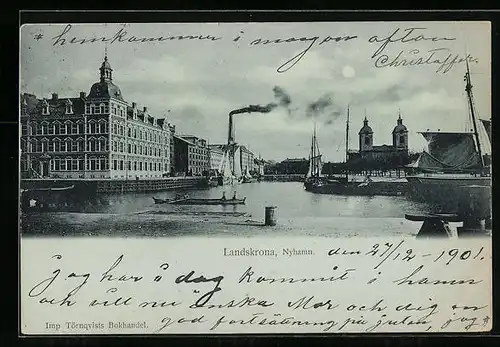 * hemkommer i morgon afton
Christoffer.
Landskrona, Nyhamn. den 27/12-1901.
jag har i dag kommit i hamn
och vill nu önska Mor och dig en
god fortsättning på julen, jag *
Imp Törnqvists Bokhandel.